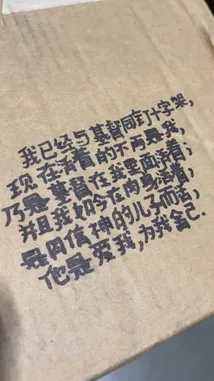 我已经与基督同钉十字架，
现在活着的不再是我，
乃是基督在我里面活着；
并且我如今在肉身活着，
是因信神的儿子而活，
他是爱我，为我舍己.